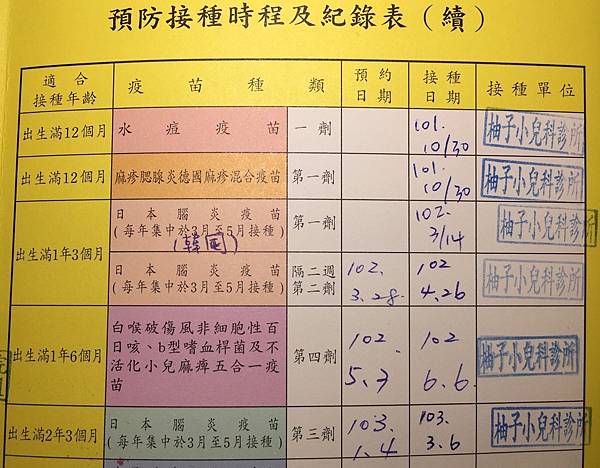 預防接種時程及紀錄表（續）
適合接種年齡 疫苗種類 預約日期 接種日期 接種單位
出生滿12個月 水痘疫苗 一劑 101. 10/30 柚子小兒科診所
出生滿12個月 麻疹腮腺炎德國麻疹混合疫苗 第一劑 101. 10/30 柚子小兒科診所
出生滿1年3個月
日本腦炎疫苗
(每年集中於3月至5月接種)
(韓國)
第一劑 102. 3/14 柚子小兒科診所
日本腦炎疫苗
(每年集中於3月至5月接種)
隔二週
第二劑
102. 3.28. 102 4.26 柚子小兒科診所
出生滿1年6個月
白喉破傷風非細胞性百
日咳、b型嗜血桿菌及不
活化小兒麻痺五合一疫
苗
第四劑 102. 5.3 102. 6.6. 柚子小兒科診所
出生滿2年3個月
日本腦炎疫苗
(每年集中於3月至5月接種)
第三劑 103. 1.4 103. 3.6 柚子小兒科診所